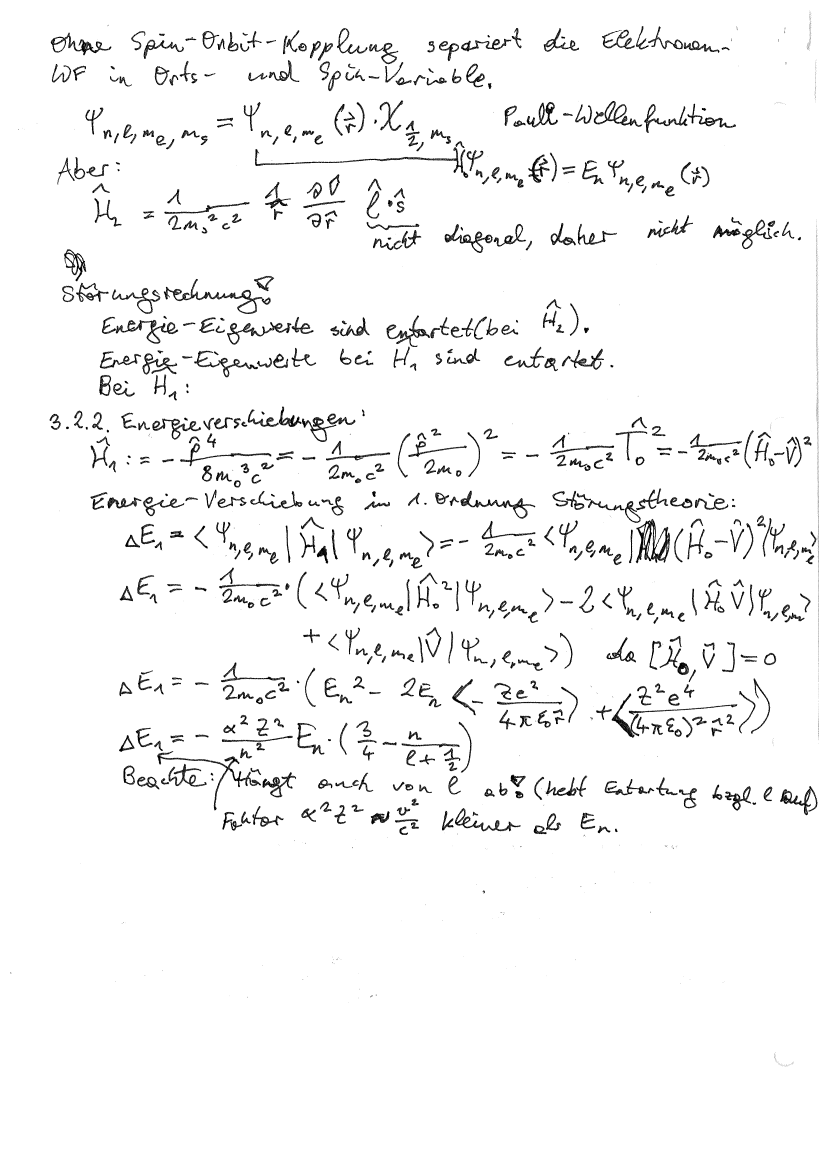 Ohne Spin-Orbit-Kopplung separiert die Elektronen-
WF in Orts- und Spin-Variable.
Ψ_{n,ℓ,m_ℓ,m_s} = Ψ_{n,ℓ,m_ℓ}(r⃗)·χ_{1/2,m_s} Pauli-Wellenfunktion
Ĥ₀Ψ_{n,ℓ,m_ℓ}(r⃗) = E_n Ψ_{n,ℓ,m_ℓ}(r⃗)
Aber:
Ĥ₂ = 1/(2m₀²c²) 1/r̂ ∂V̂/∂r̂ ℓ̂·ŝ
nicht diagonal, daher nicht möglich.
Störungsrechnung!
Energie-Eigenwerte sind entartet (bei Ĥ₂).
Energie-Eigenwerte bei H₁ sind entartet.
Bei H₁:
3.2.2. Energieverschiebungen:
Ĥ₁ := - p̂⁴/(8m₀³c²) = - 1/(2m₀c²) (p̂²/(2m₀))² = - 1/(2m₀c²) T̂₀² = - 1/(2m₀c²) (Ĥ₀-V̂)²
Energie-Verschiebung in 1. Ordnung Störungstheorie:
ΔE₁ = <Ψ_{n,ℓ,m_ℓ}|Ĥ₁|Ψ_{n,ℓ,m_ℓ}> = - 1/(2m₀c²) <Ψ_{n,ℓ,m_ℓ}|(Ĥ₀-V̂)²|Ψ_{n,ℓ,m_ℓ}>
ΔE₁ = - 1/(2m₀c²)·(<Ψ_{n,ℓ,m_ℓ}|Ĥ₀²|Ψ_{n,ℓ,m_ℓ}> - 2<Ψ_{n,ℓ,m_ℓ}|Ĥ₀V̂|Ψ_{n,ℓ,m}>
+ <Ψ_{n,ℓ,m_ℓ}|V̂|Ψ_{n,ℓ,m_ℓ}>) da [Ĥ₀,V̂]=0
ΔE₁ = - 1/(2m₀c²)·(E_n² - 2E_n <- Ze²/(4πε₀r̂)> + <Z²e⁴/((4πε₀)²r̂²)>)
ΔE₁ = - α²Z²/n² E_n·(3/4 - n/(ℓ+1/2))
Beachte: Hängt auch von ℓ ab! (hebt Entartung bzgl. ℓ auf)
Faktor α²Z² ≈ v²/c² kleiner als E_n.